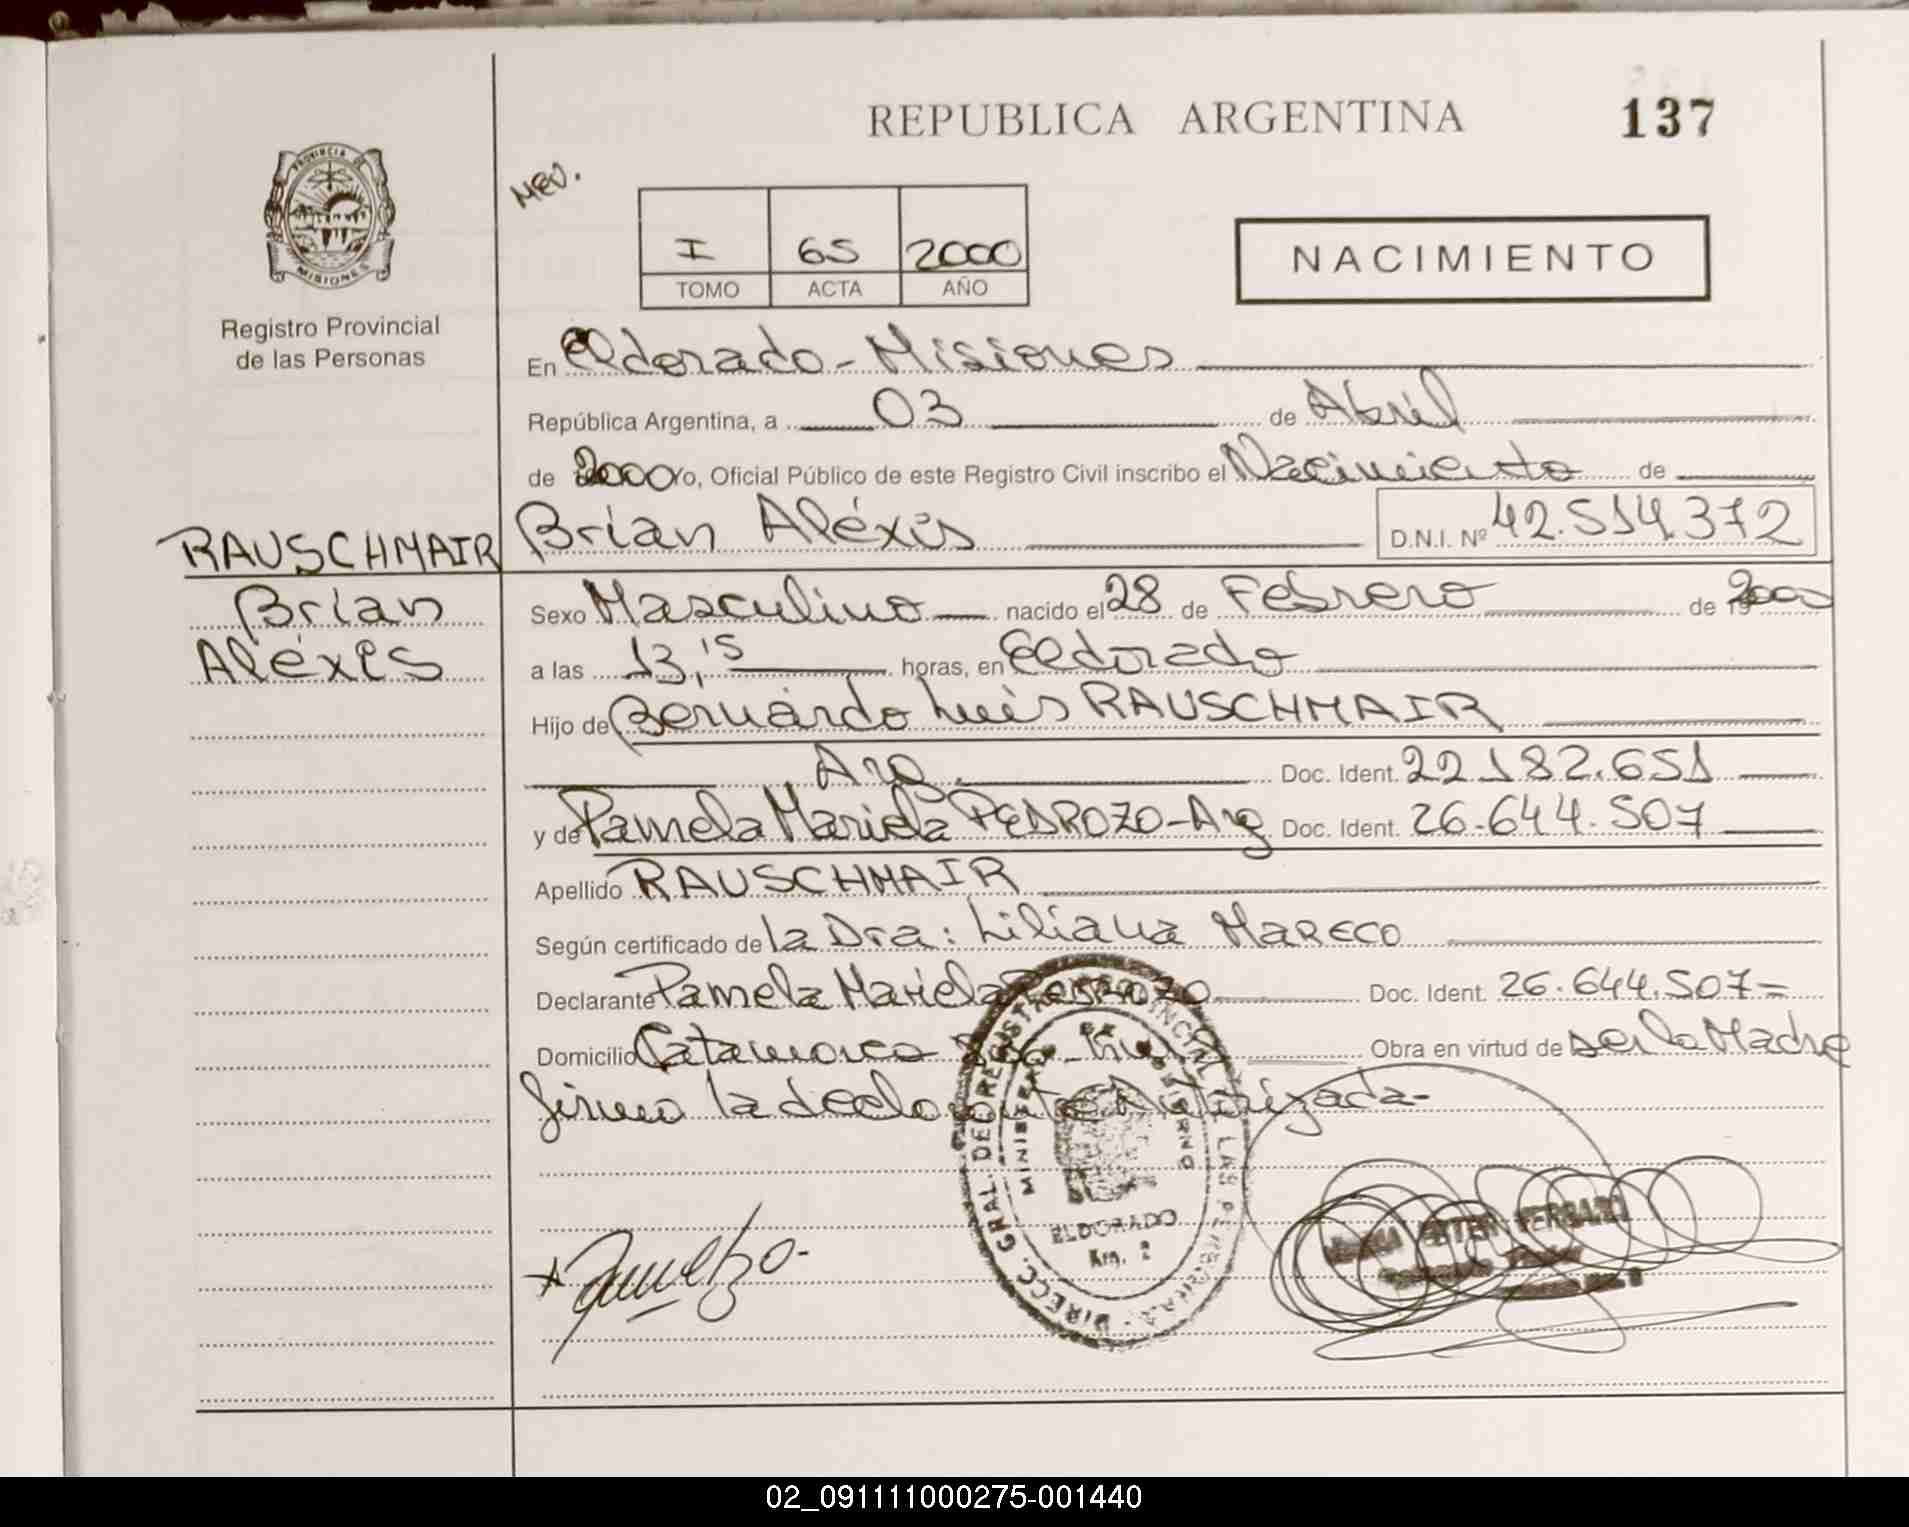 REPUBLICA ARGENTINA
137
PROVINCIA DE
MISIONES
Registro Provincial
de las Personas
I 65 2000
TOMO ACTA AÑO
NACIMIENTO
En Eldorado - Misiones
República Argentina, a 03 de Abril
de 2000 Yo, Oficial Público de este Registro Civil inscribo el Nacimiento de
RAUSCHMAIR
Brian
Aléxis
Brian Aléxis D.N.I. Nº 42.514.372
Sexo Masculino nacido el 28 de Febrero de 2000
a las 13,15 horas, en Eldorado
Hijo de Bernardo Luis RAUSCHMAIR
Arg. Doc. Ident. 22.182.651
y de Pamela Mariela PEDROZO - Arg Doc. Ident. 26.644.507
Apellido RAUSCHMAIR
Según certificado de la Dra: Liliana MARECO
Declarante Pamela Mariela PEDROZO Doc. Ident. 26.644.507=
Domicilio Catamarca Obra en virtud de ser la Madre
firma la declarante Autorizada-
DIRECC. GRAL. DEL REGISTRO PROVINCIAL DE LAS PERSONAS
MINISTERIO DE GOBIERNO
ELDORADO
Km. 2
02_091111000275-001440